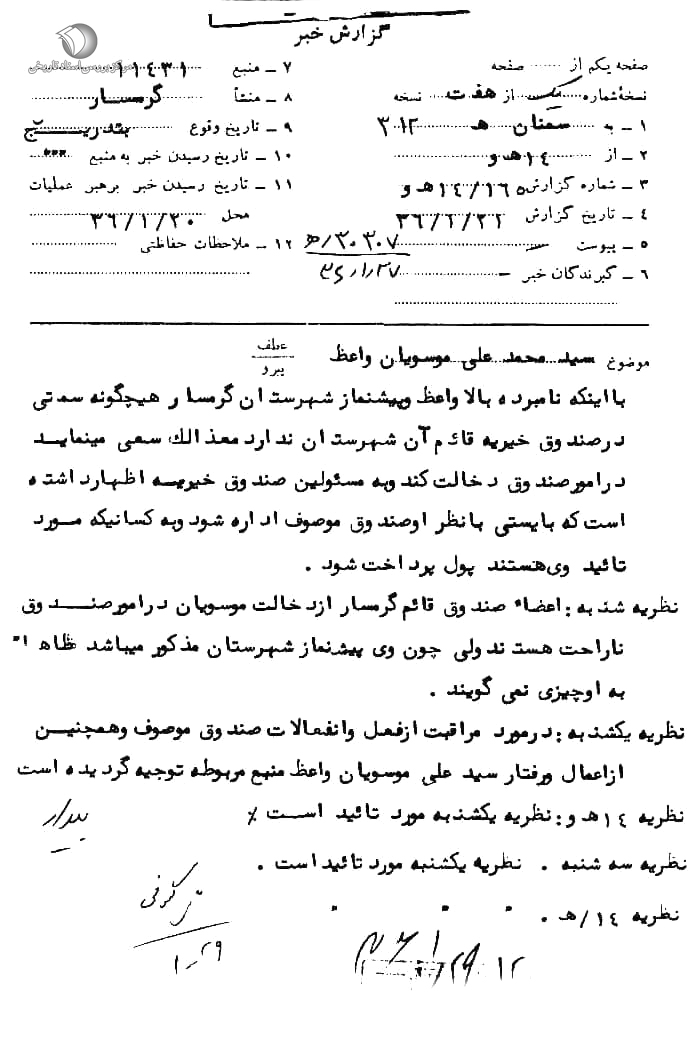 گزارش خبر
مرکز بررسی اسناد تاریخی
صفحه یکم از صفحه
نسخه شماره یک از هفت نسخه
۱ - به سمنان ه‍ ۳۱۲
۲ - از ۱۴ه‍ و
۳ - شماره گزارش ۱۴/۱۶۵ه‍ و
۴ - تاریخ گزارش ۳۶/۱/۲۱
۵ - پیوست
۶ - گیرندگان خبر
۷ - منبع ۱۱۴۳۱
۸ - منشأ گرمسار
۹ - تاریخ وقوع بتدریج
۱۰ - تاریخ رسیدن خبر به منبع
۱۱ - تاریخ رسیدن خبر برهبر عملیات
محل ۳۶/۱/۲۰
۱۲ - ملاحظات حفاظتی
۳۰۳۰۷/ه‍
۳۶/۱/۲۷
موضوع سید محمد علی موسویان واعظ
عطف
پیرو
با اینکه نامبرده بالا واعظ وپیشنماز شهرستان گرمسار هیچگونه سمتی
درصندوق خیریه قائم آن شهرستان ندارد معذالك سعی مینماید
درامورصندوق دخالت کند وبه مسئولین صندوق خیریسه اظهارداشته
است که بایستی بانظر اوصندوق موصوف اداره شود وبه کسانیکه مورد
تائید وی هستند پول پرداخت شود .
نظریه شنبه : اعضاء صندوق قائم گرمسار ازدخالت موسویان درامورصندوق
ناراحت هستند ولی چون وی پیشنماز شهرستان مذکور میباشد ظاهراً
به اوچیزی نمی گویند .
نظریه یکشنبه : درمورد مراقبت ازفعل وانفعالات صندوق موصوف وهمچنین
ازاعمال ورفتار سید علی موسویان واعظ منبع مربوطه توجیه گردیده است
نظریه ۱۴ ه‍ و : نظریه یکشنبه مورد تائید است ٪
بیدار
نظریه سه شنبه . نظریه یکشنبه مورد تائید است .
نظریه ۱۴/ه‍ .
۱-۲۹